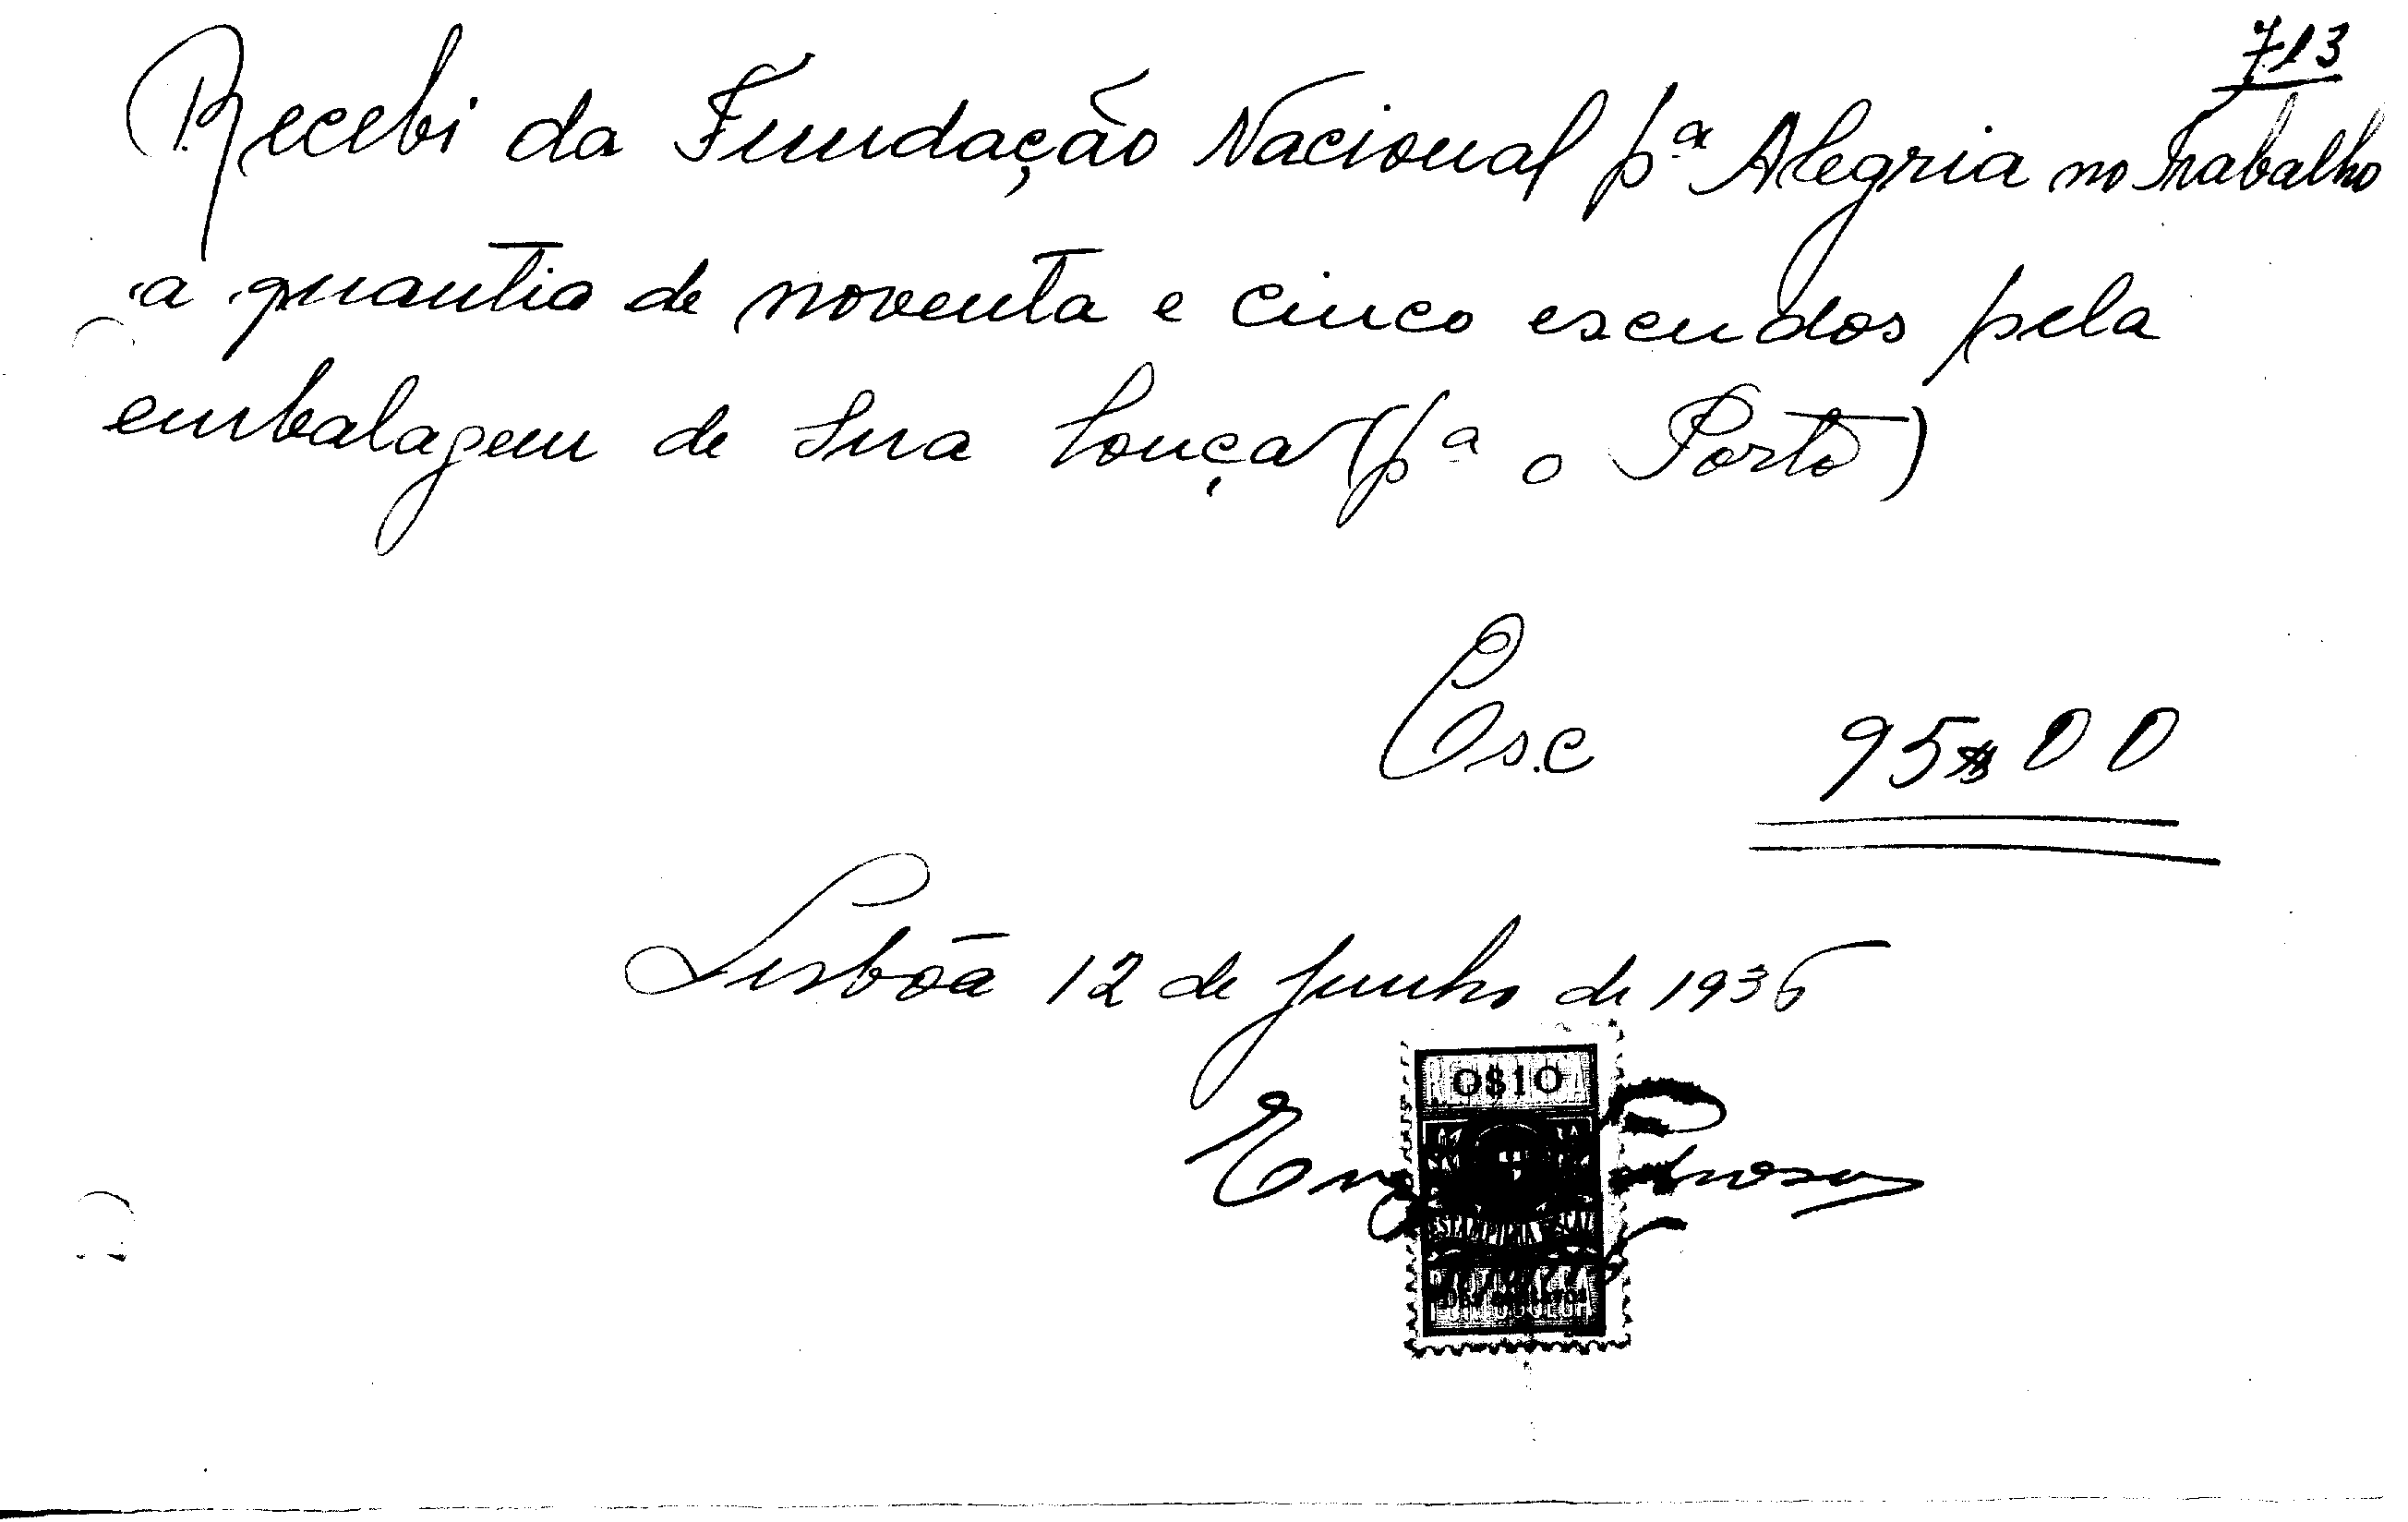 713
Recebi da Fundação Nacional pª Alegria no Trabalho
a quantia de noventa e cinco escudos pela
embalagem de sua louça (pª o Porto)
Esc 95$00
Lisbôa 12 de Junho de 1936
0$10
ESTAMPILHA FISCAL